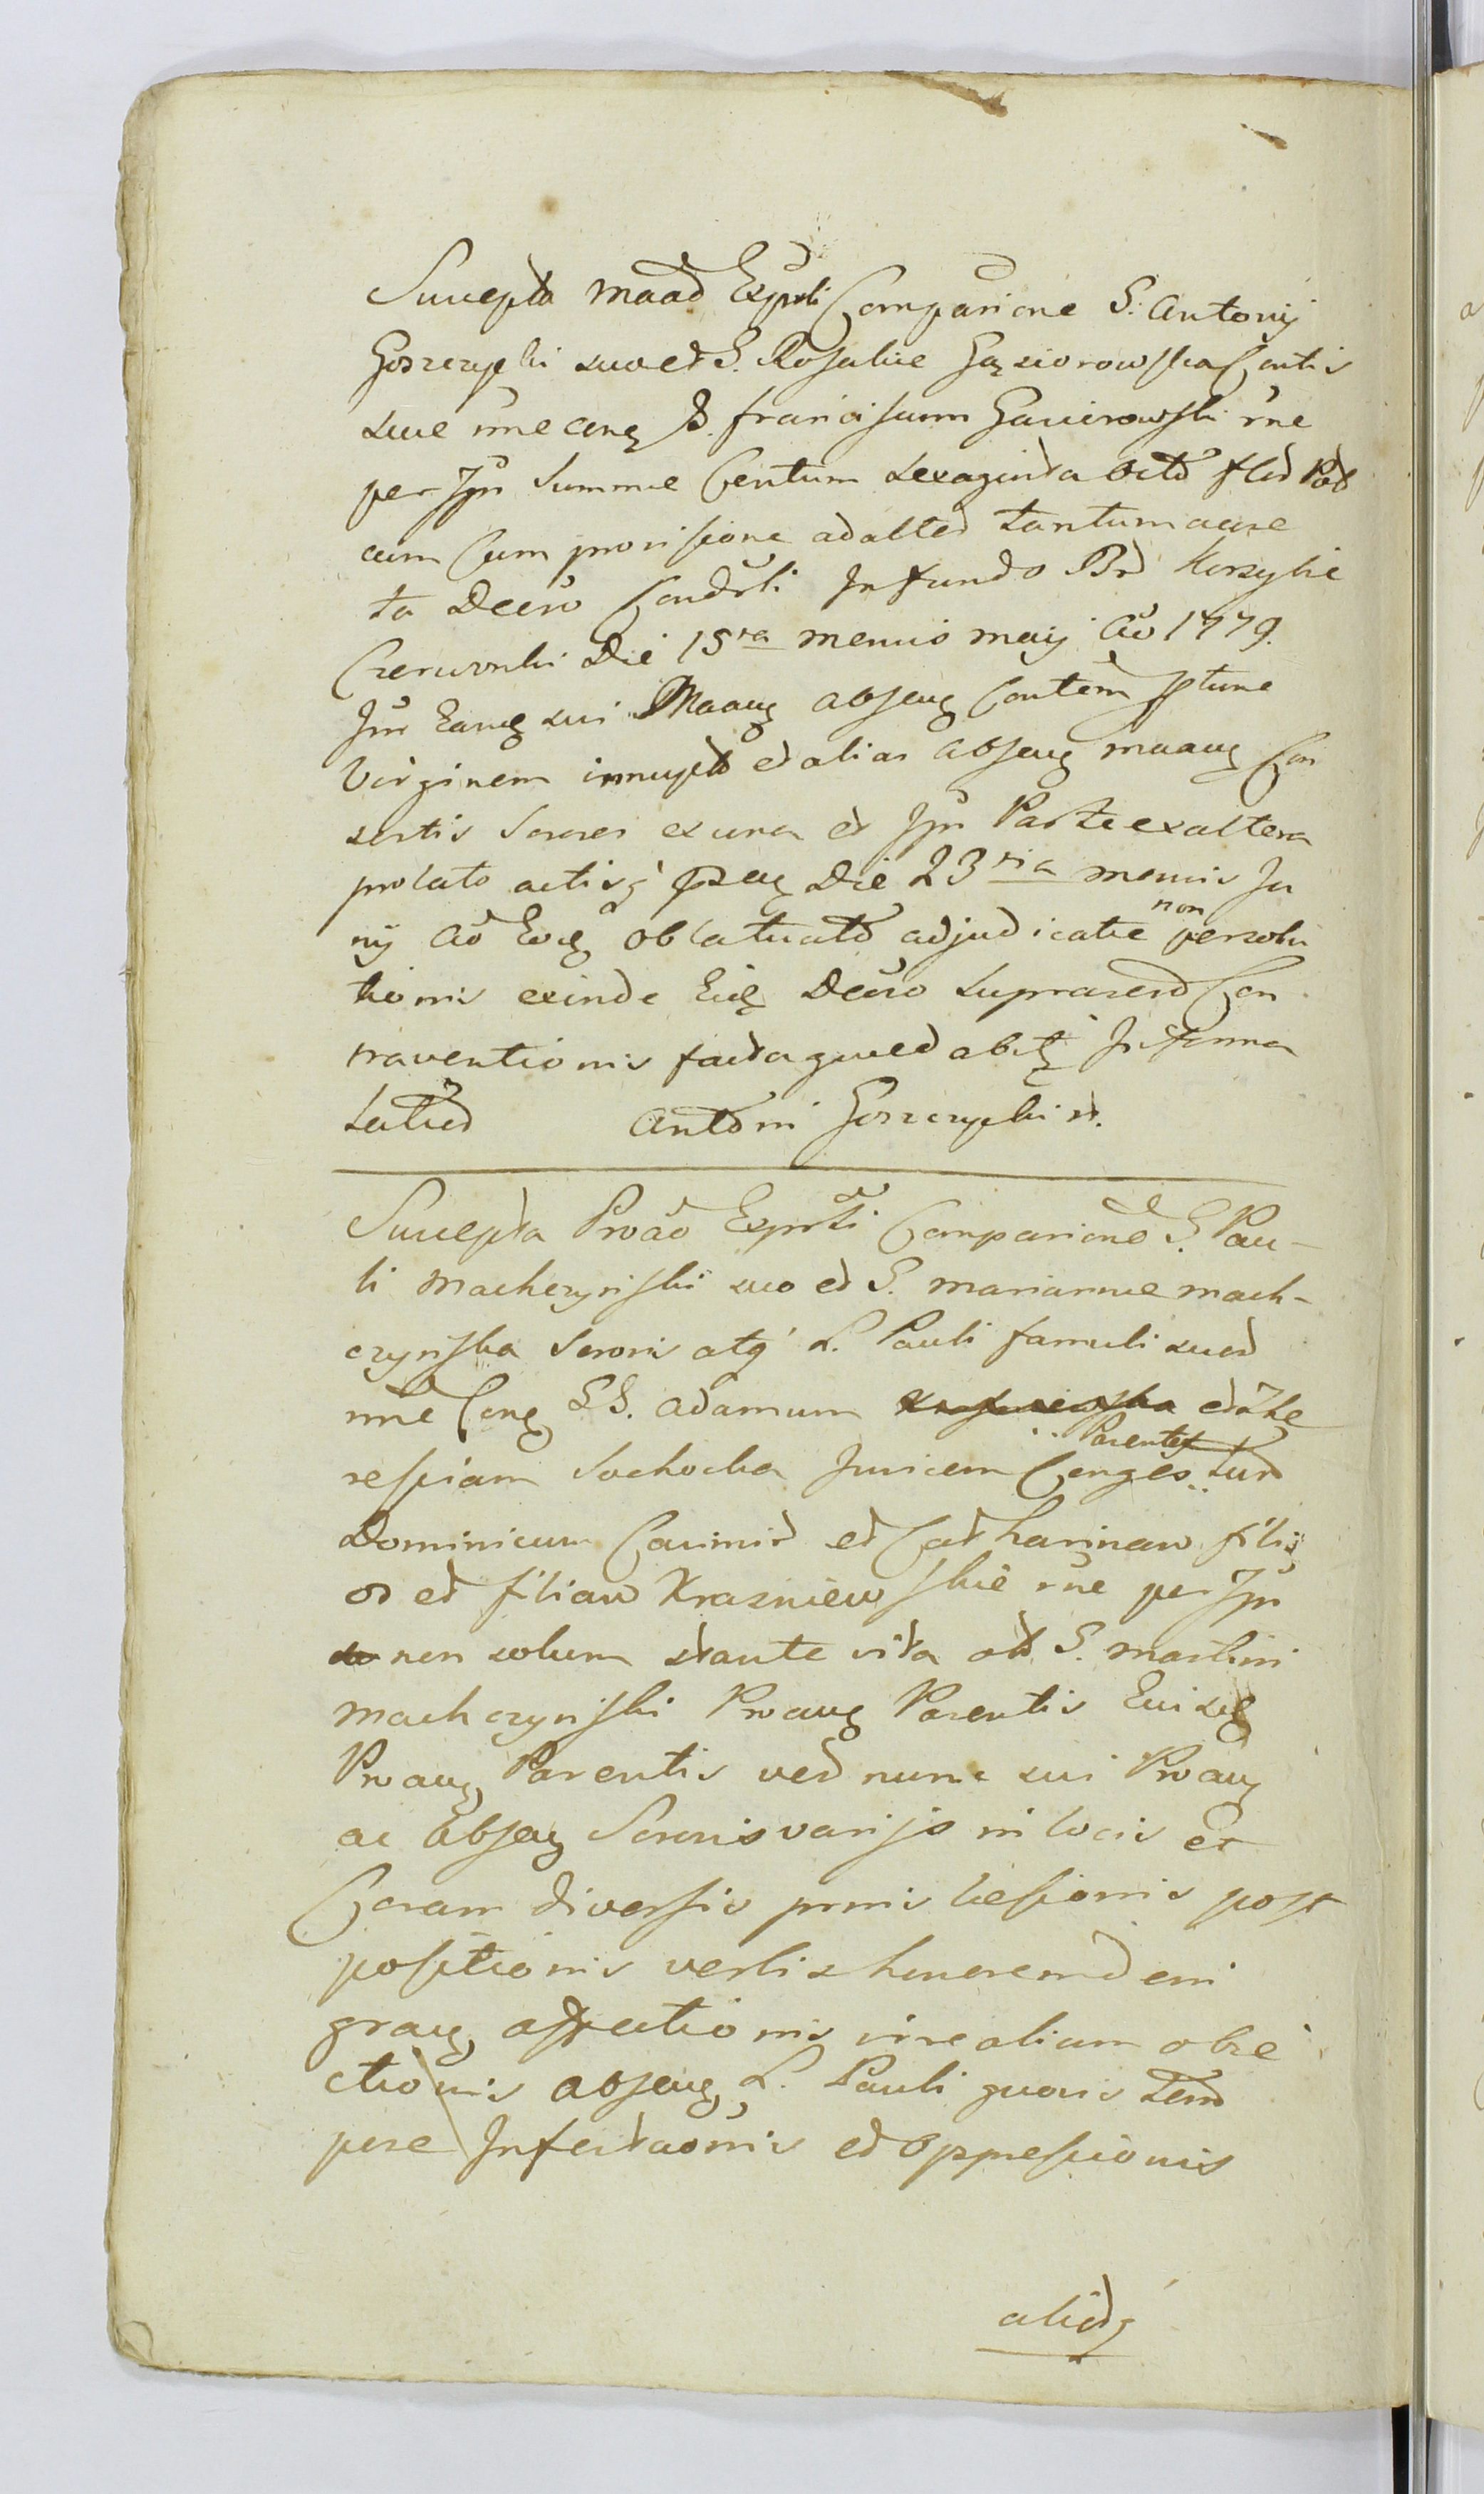 Suscepta maad Exprli Comparione G. Antonij
Goszczycki suo et G. Rosaliae Gąsiorowska Contis
suae nne cong G. Franciscum Gasierowski rne
per Jpn Summae Centum sexaginta octo flor Pol
cum Cum provisione ad alter tantum accre
ta Decro Condrli In fundo Bd Korzybie
Czerwonki Die 15ta mensis maij Ao 1779.
Jnr Eang sui Maang abseng Contem
Virginem innupta et alias abseng maang Con
sortis Soror ex una et Jpn Parte ex altera
prolato actisq Die 23tia mensis Ju
nij Ao Eoq oblatuato adjudicatae non persolu
tionis exinde Eiq Decro supraser Con
traventionis facta qued abitq In forma
Latied Antoni Goszczycki
Suscepta Proao Exprti Comparione G. Pau-
li Machczyński suo et G. mariannae mach-
czyńska Sororis atq L. Pauli famuli sued
nne Cong GG. Adamum et The
resiam Sochocka Invicem Conges Parentes tum
Dominicum Casimir et Catharinam filij
os et filiam Krasniewskie rne per Jpn
non solum stante vita ol G. martini
Machczyński Proang Parentis Eui
Proang Parentis ved nunc sui Proang
ac Absenq Sororis varijs in locis et
Coram diversis prnis laesionis post
positionis verbis honerem
grang affectionis obie
ctionis absenq L. Pauli quovis tem
pore Infestaonis et Oppressionis
aliorq